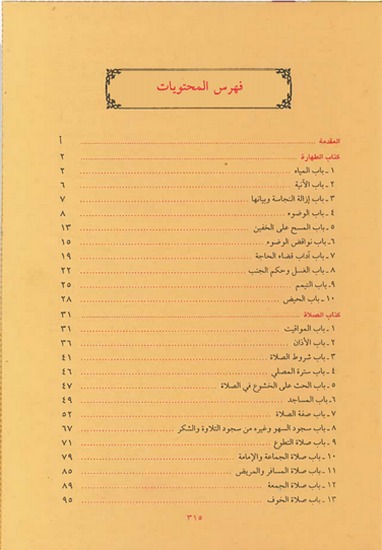 فهرس المحتويات
المقدمة أ
كتاب الطهارة ٢
١ - باب المياه ٢
٢ - باب الآنية ٦
٣ - باب إزالة النجاسة وبيانها ٧
٤ - باب الوضوء ٨
٥ - باب المسح على الخفين ١٣
٦ - باب نواقض الوضوء ١٥
٧ - باب آداب قضاء الحاجة ١٩
٨ - باب الغسل وحكم الجنب ٢٢
٩ - باب التيمم ٢٥
١٠ - باب الحيض ٢٨
كتاب الصلاة ٣١
١ - باب المواقيت ٣١
٢ - باب الأذان ٣٦
٣ - باب شروط الصلاة ٤١
٤ - باب سترة المصلي ٤٦
٥ - باب الحث على الخشوع في الصلاة ٤٧
٦ - باب المساجد ٤٩
٧ - باب صفة الصلاة ٥٢
٨ - باب سجود السهو وغيره من سجود التلاوة والشكر ٦٧
٩ - باب صلاة التطوع ٧١
١٠ - باب صلاة الجماعة والإمامة ٧٩
١١ - باب صلاة المسافر والمريض ٨٥
١٢ - باب صلاة الجمعة ٨٩
١٣ - باب صلاة الخوف ٩٥
٣١٥